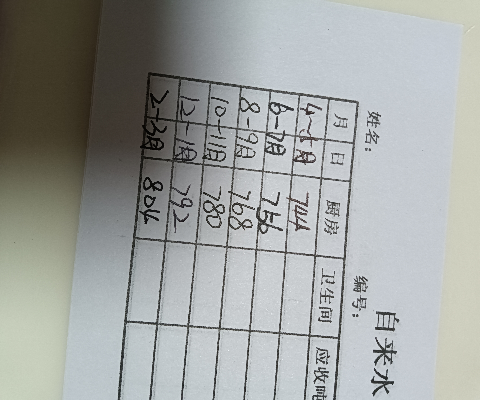 自来水
姓名： 编号：
月 日 厨房 卫生间 应收吨
4-5月 744
6-7月 756
8-9月 768
10-11月 780
12-1月 792
2-3月 804